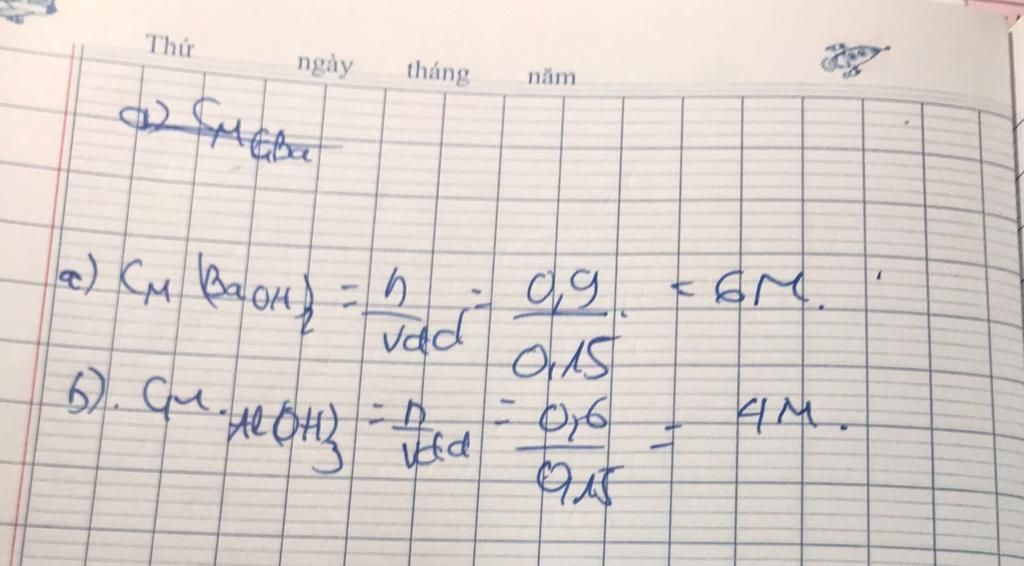 Thứ ngày tháng năm
a) CM Ba
a) CM (BaOH)2 = n/Vdd = 0,9/0,15 = 6M.
b). CM. Al(OH)3 = n/Vdd = 0,6/0,15 = 4M.